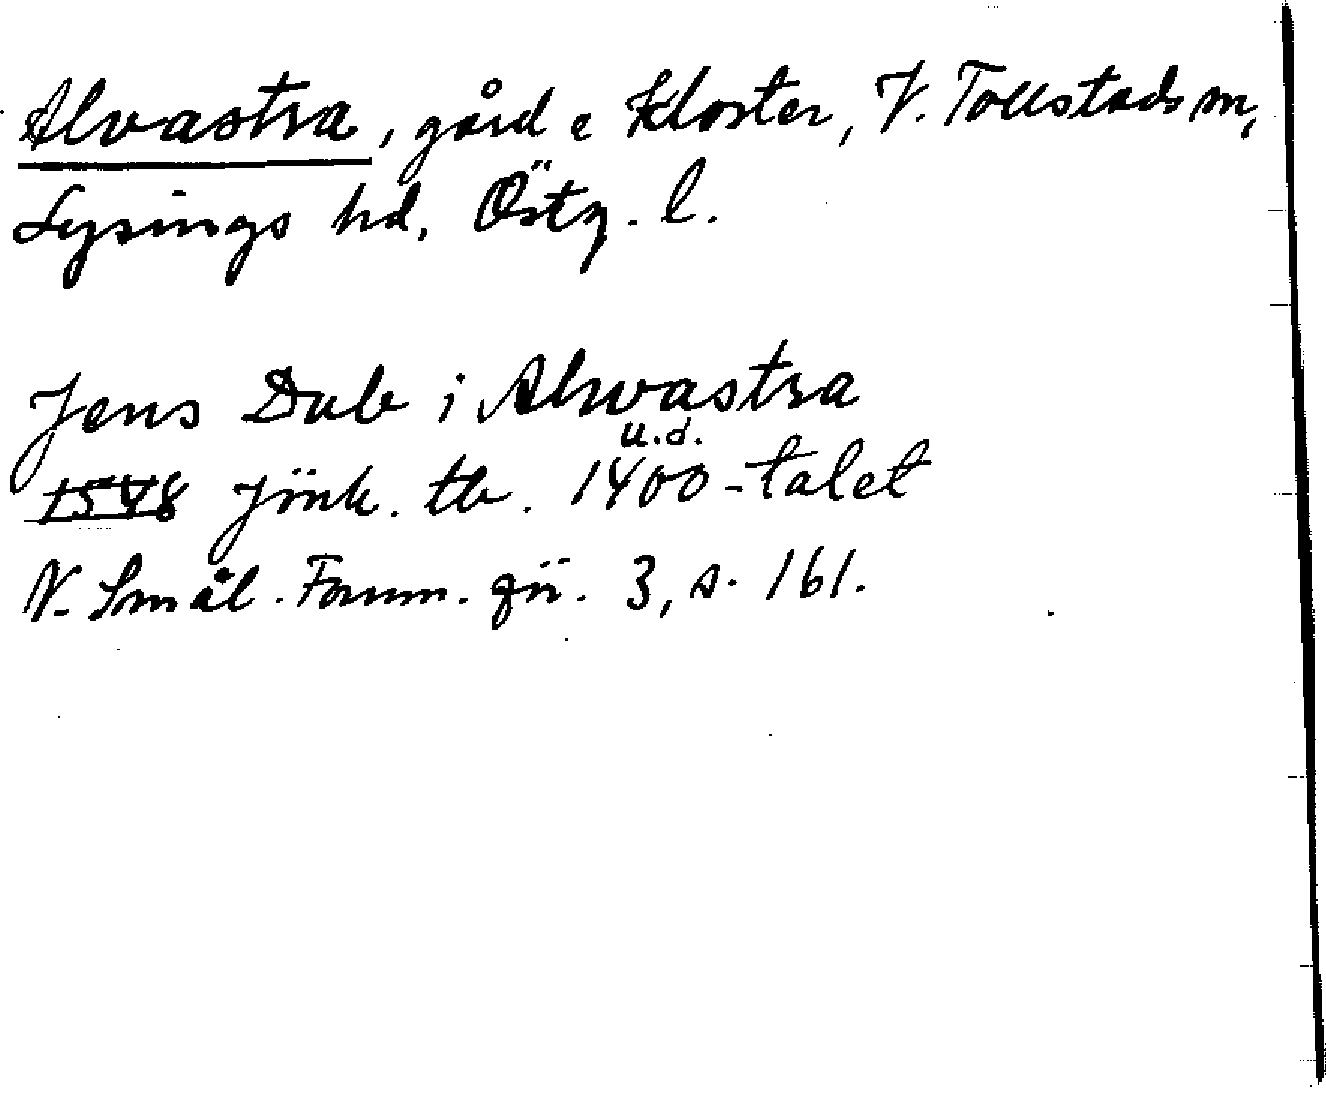 Alvastra, gård e kloster, V. Tollstads sn,
Lysings hd, Östg. l.
Jens Dub i Alwastra
u.d.
1548 Jönk. tb. 1400-talet
N. Smål. Fornm. för. 3, s. 161.